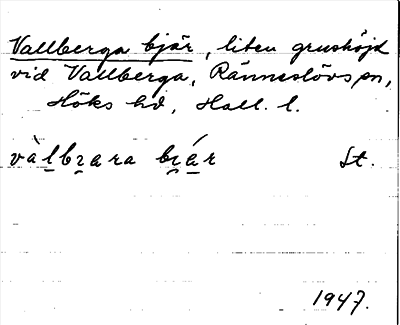 Vallberga bjär, liten grushöjd
vid Vallberga, Ränneslövs sn,
Höks hd, Hall. l.
vàlbɀara bɀár St.
1947.